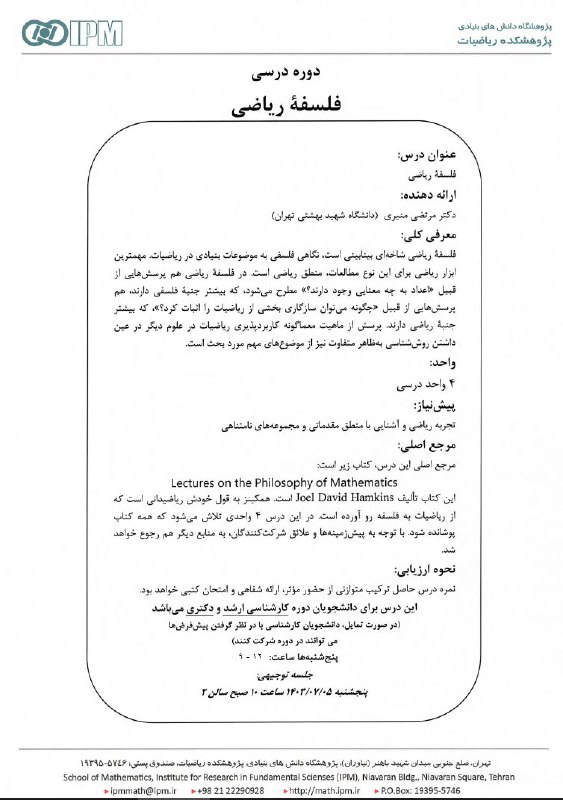 IPM
پژوهشگاه دانش های بنیادی
پژوهشکده ریاضیات
دوره درسی
فلسفۀ ریاضی
عنوان درس:
فلسفۀ ریاضی
ارائه دهنده:
دکتر مرتضی منیری (دانشگاه شهید بهشتی تهران)
معرفی کلی:
فلسفۀ ریاضی شاخه‌ای بینابینی است، نگاهی فلسفی به موضوعات بنیادی در ریاضیات. مهمترین
ابزار ریاضی برای این نوع مطالعات، منطق ریاضی است. در فلسفۀ ریاضی هم پرسش‌هایی از
قبیل «اعداد به چه معنایی وجود دارند؟» مطرح می‌شود، که بیشتر جنبۀ فلسفی دارند، هم
پرسش‌هایی از قبیل «چگونه می‌توان سازگاری بخشی از ریاضیات را اثبات کرد؟»، که بیشتر
جنبۀ ریاضی دارند. پرسش از ماهیت معماگونه کاربردپذیری ریاضیات در علوم دیگر در عین
داشتن روش‌شناسی به‌ظاهر متفاوت نیز از موضوع‌های مهم مورد بحث است.
واحد:
۴ واحد درسی
پیش‌نیاز:
تجربه ریاضی و آشنایی با منطق مقدماتی و مجموعه‌های نامتناهی
مرجع اصلی:
مرجع اصلی این درس، کتاب زیر است:
Lectures on the Philosophy of Mathematics
این کتاب تألیف Joel David Hamkins است. همکینز به قول خودش ریاضیدانی است که
از ریاضیات به فلسفه رو آورده است. در این درس ۴ واحدی تلاش می‌شود که همه کتاب
پوشانده شود. با توجه به پیش‌زمینه‌ها و علائق شرکت‌کنندگان، به منابع دیگر هم رجوع خواهد
شد.
نحوه ارزیابی:
نمره درس حاصل ترکیب متوازنی از حضور مؤثر، ارائه شفاهی و امتحان کتبی خواهد بود.
این درس برای دانشجویان دوره کارشناسی ارشد و دکتری می‌باشد
(در صورت تمایل، دانشجویان کارشناسی با در نظر گرفتن پیش‌فرض‌ها
می توانند در دوره شرکت کنند)
پنج‌شنبه‌ها ساعت: ۱۲ - ۹
جلسه توجیهی:
پنجشنبه ۱۴۰۳/۰۷/۰۵ ساعت ۱۰ صبح سالن ۲
تهران، ضلع جنوبی میدان شهید باهنر (نیاوران)، پژوهشگاه دانش های بنیادی، پژوهشکده ریاضیات، صندوق پستی: ۵۷۴۶-۱۹۳۹۵
School of Mathematics, Institute for Research in Fundamental Scienses (IPM), Niavaran Bldg., Niavaran Square, Tehran
ipmmath@ipm.ir +98 21 22290928 http://math.ipm.ir P.O.Box: 19395-5746